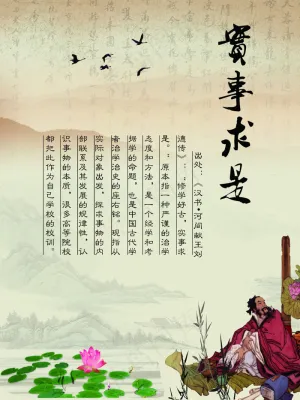 實事求是
出处:《汉书•河间献王刘
德传》:“修学好古,实事求
是。”原本指一种严谨的治学
态度和方法,是一个经学和考
据学的命题,也是中国古代学
者治学治史的座右铭。现指从
实际对象出发,探求事物的内
部联系及其发展的规律性,认
识事物的本质。很多高等院校
都把此作为自己学校的校训。